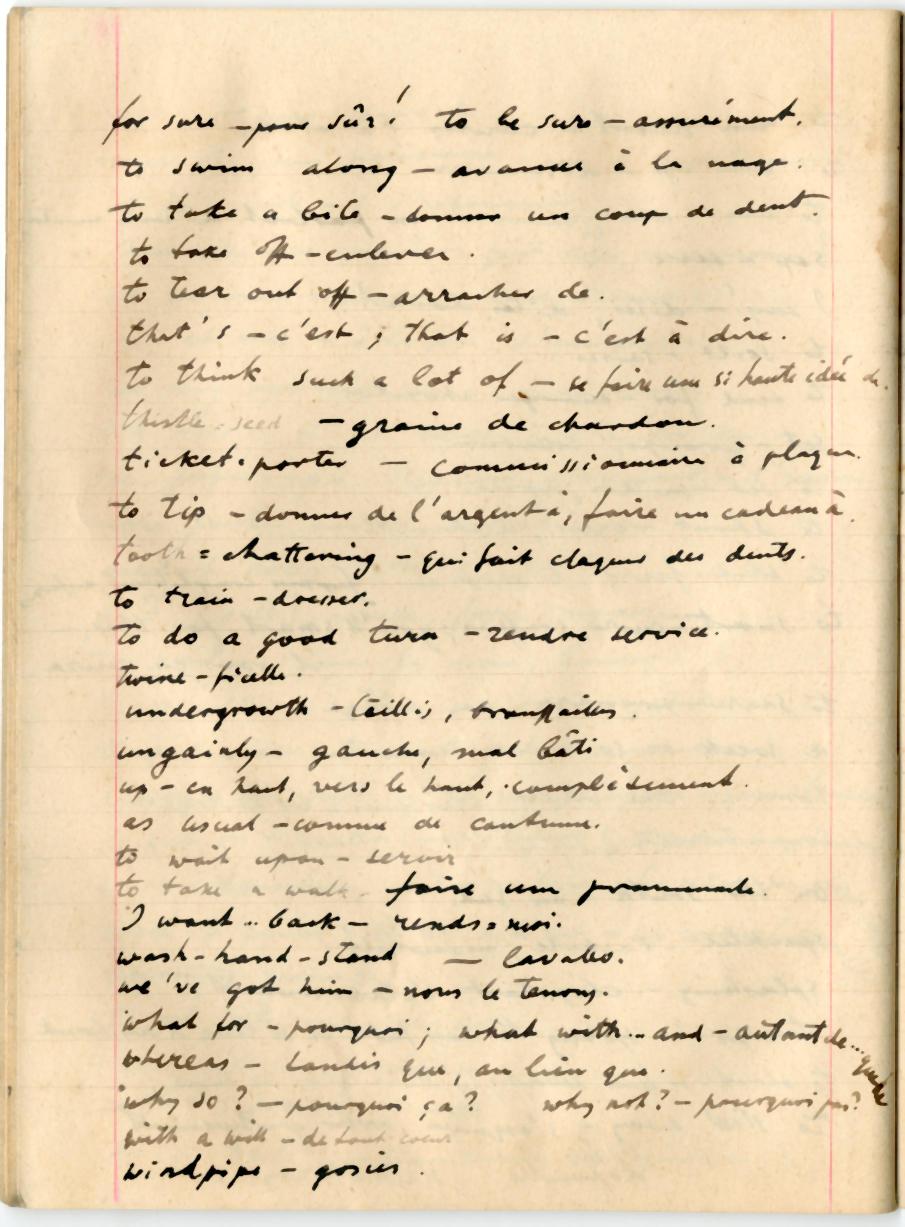 for sure - pour sûr! to be sure - assurément.
to swim along - avancer à la nage.
to take a bite - donner un coup de dent.
to take off - enlever.
to tear out off - arracher de.
that's - c'est ; that is - c'est à dire.
to think such a lot of - se faire une si haute idée de.
thistle-seed - graine de chardon.
ticket-porter - commissionnaire à plaque.
to tip - donner de l'argent à, faire un cadeau à.
tooth=chattering - qui fait claquer des dents.
to train - dresser.
to do a good turn - rendre service.
twine - ficelle.
undergrowth - taillis, broussailles.
ungainly - gauche, mal bâti
up - en haut, vers le haut, complètement.
as usual - comme de coutume.
to wait upon - servir
to take a walk - faire une promenade.
I want .. back - rends=moi.
wash-hand-stand - lavabo.
we've got him - nous le tenons.
what for - pourquoi ; what with... and - autant de... que de
whereas - tandis que, au lieu que.
why so? - pourquoi ça? why not? - pourquoi pas?
with a will - de tout coeur
windpipe - gosier.